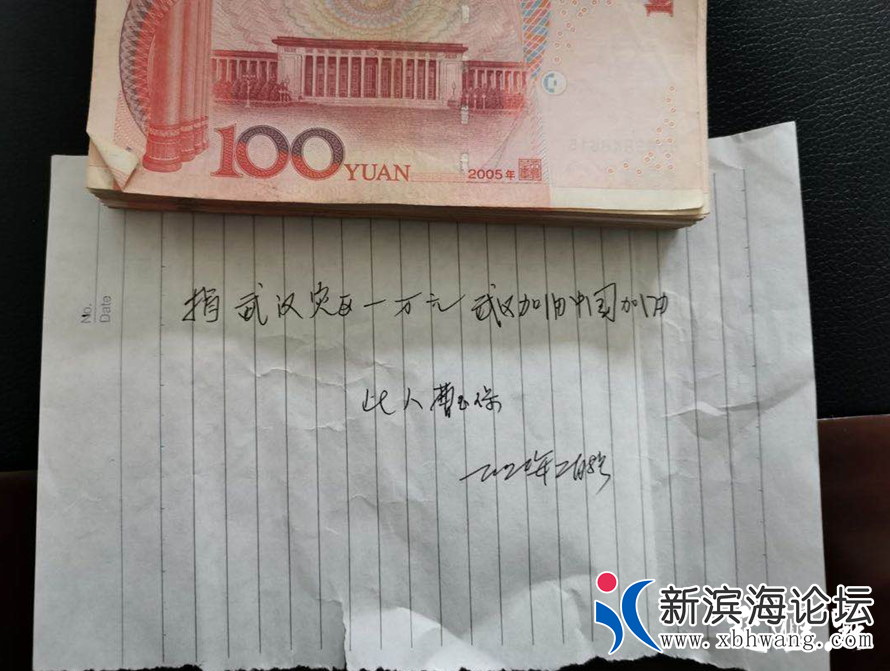 100
YUAN
2005年
No.
Date
捐武汉灾区一万元 武汉加油中国加油
此人曹玉保
二〇二〇年二月8号
新滨海论坛
www.xbhwang.com